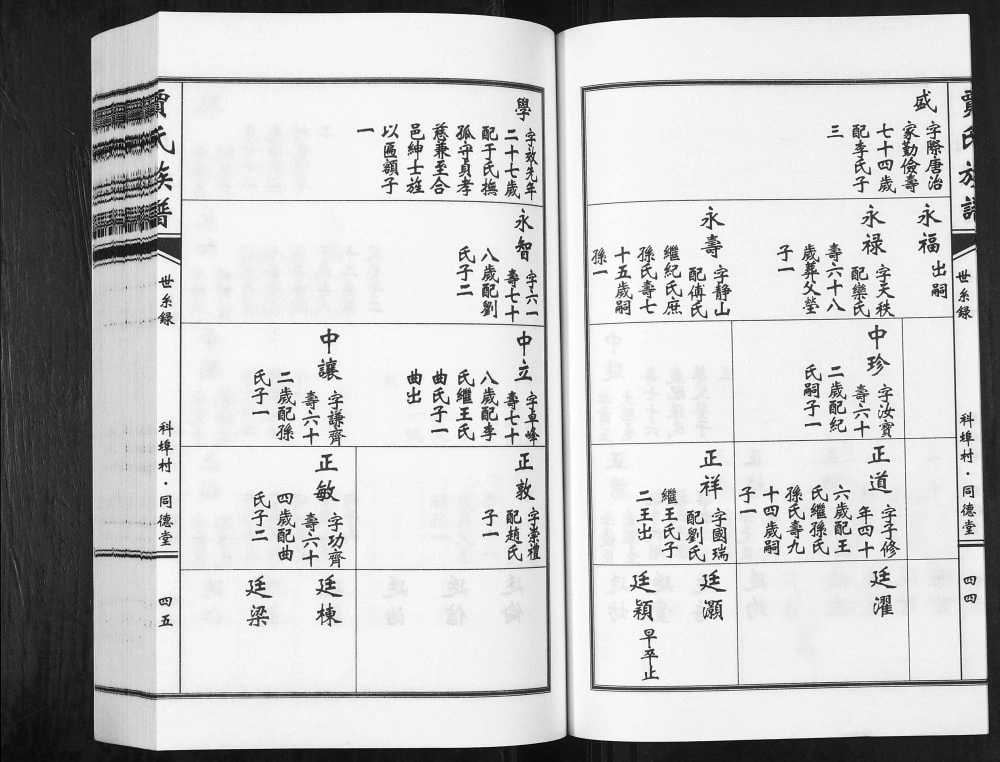 賈氏族譜
世系錄
科埠村·同德堂
四四
盛
字際唐治
家勤儉壽
七十四歲
配李氏子
三
永福
出嗣
永祿
字天秩
配欒氏
壽六十八
歲葬父塋
子一
永壽
字靜山
配傅氏
繼紀氏庶
孫氏壽七
十五歲嗣
孫一
中珍
字汝寶
壽六十
二歲配紀
氏嗣子一
正道
字子修
年四十
六歲配王
氏繼孫氏
孫氏壽九
十四歲嗣
子一
正祥
字國瑞
配劉氏
繼王氏子
二王出
廷濯
廷灝
廷穎
早卒止
學
字效先年
二十七歲
配于氏撫
孤守貞孝
慈兼至合
邑紳士旌
以匾額子
一
永智
字六一
壽七十
八歲配劉
氏子二
中立
字卓峰
壽七十
八歲配李
氏繼王氏
曲氏子一
曲出
中讓
字謙齊
壽六十
二歲配孫
氏子一
正敦
字崇禮
配趙氏
子一
正敏
字功齊
壽六十
四歲配曲
氏子二
廷棟
廷梁
賈氏族譜
世系錄
科埠村·同德堂
四五